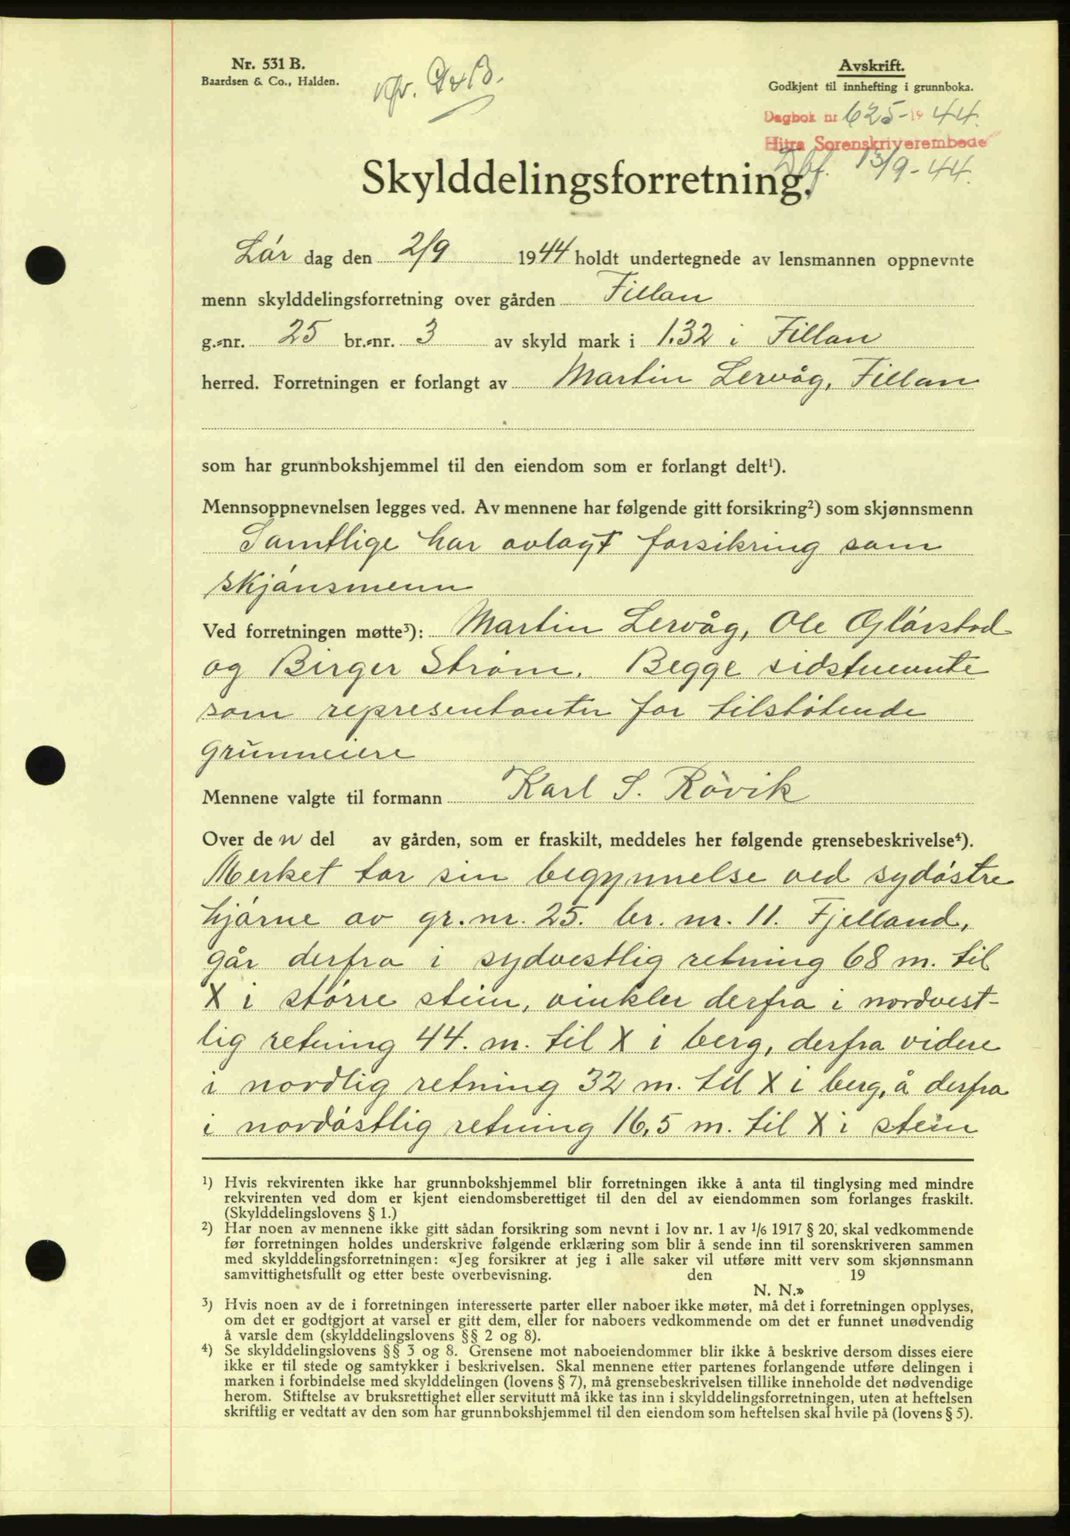 Nr. 531 B.
Baardsen & Co., Halden.
Avskrift.
Godkjent til innhefting i grunnboka.
Dagbok nr 625-19 44.
Hitra Sorenskriverembede
Dbf. 13/9-44.
Skylddelingsforretning.
Lør dag den 2/9 1944 holdt undertegnede av lensmannen oppnevnte
menn skylddelingsforretning over gården Fillan
g.-nr. 25 br.-nr. 3 av skyld mark i 1.32 i Fillan
herred. Forretningen er forlangt av Martin Lervåg, Fillan
som har grunnbokshjemmel til den eiendom som er forlangt delt¹).
Mennsoppnevnelsen legges ved. Av mennene har følgende gitt forsikring²) som skjønnsmenn
Samtlige har avlagt forsikring som
skjønsmenn
Ved forretningen møtte³): Martin Lervåg, Ole Glørstad
og Birger Strøm. Begge sidstnevnte
som representanter for tilstøtende
grunneiere
Mennene valgte til formann Karl S. Røvik
Over de n del av gården, som er fraskilt, meddeles her følgende grensebeskrivelse⁴).
Merket tar sin begynnelse ved sydøstre
hjørne av gr. nr. 25. br. nr. 11. Fjelland,
går derfra i sydvestlig retning 68 m. til
X i større stein, vinkler derfra i nordvest-
lig retning 44. m. til X i berg, derfra videre
i nordlig retning 32 m. til X i berg, å derfra
i nordøstlig retning 16,5 m. til X i stein
¹) Hvis rekvirenten ikke har grunnbokshjemmel blir forretningen ikke å anta til tinglysing med mindre
rekvirenten ved dom er kjent eiendomsberettiget til den del av eiendommen som forlanges fraskilt.
(Skylddelingslovens § 1.)
²) Har noen av mennene ikke gitt sådan forsikring som nevnt i lov nr. 1 av 1/6 1917 § 20, skal vedkommende
før forretningen holdes underskrive følgende erklæring som blir å sende inn til sorenskriveren sammen
med skylddelingsforretningen: «Jeg forsikrer at jeg i alle saker vil utføre mitt verv som skjønnsmann
samvittighetsfullt og etter beste overbevisning. den 19
N. N.»
³) Hvis noen av de i forretningen interesserte parter eller naboer ikke møter, må det i forretningen opplyses,
om det er godtgjort at varsel er gitt dem, eller for naboers vedkommende om det er funnet unødvendig
å varsle dem (skylddelingslovens §§ 2 og 8).
⁴) Se skylddelingslovens §§ 3 og 8. Grensene mot naboeiendommer blir ikke å beskrive dersom disses eiere
ikke er til stede og samtykker i beskrivelsen. Skal mennene etter partenes forlangende utføre delingen i
marken i forbindelse med skylddelingen (lovens § 7), må grensebeskrivelsen tillike inneholde det nødvendige
herom. Stiftelse av bruksrettighet eller servitutt må ikke tas inn i skylddelingsforretningen, uten at heftelsen
skriftlig er vedtatt av den som har grunnbokshjemmel til den eiendom som heftelsen skal hvile på (lovens § 5).